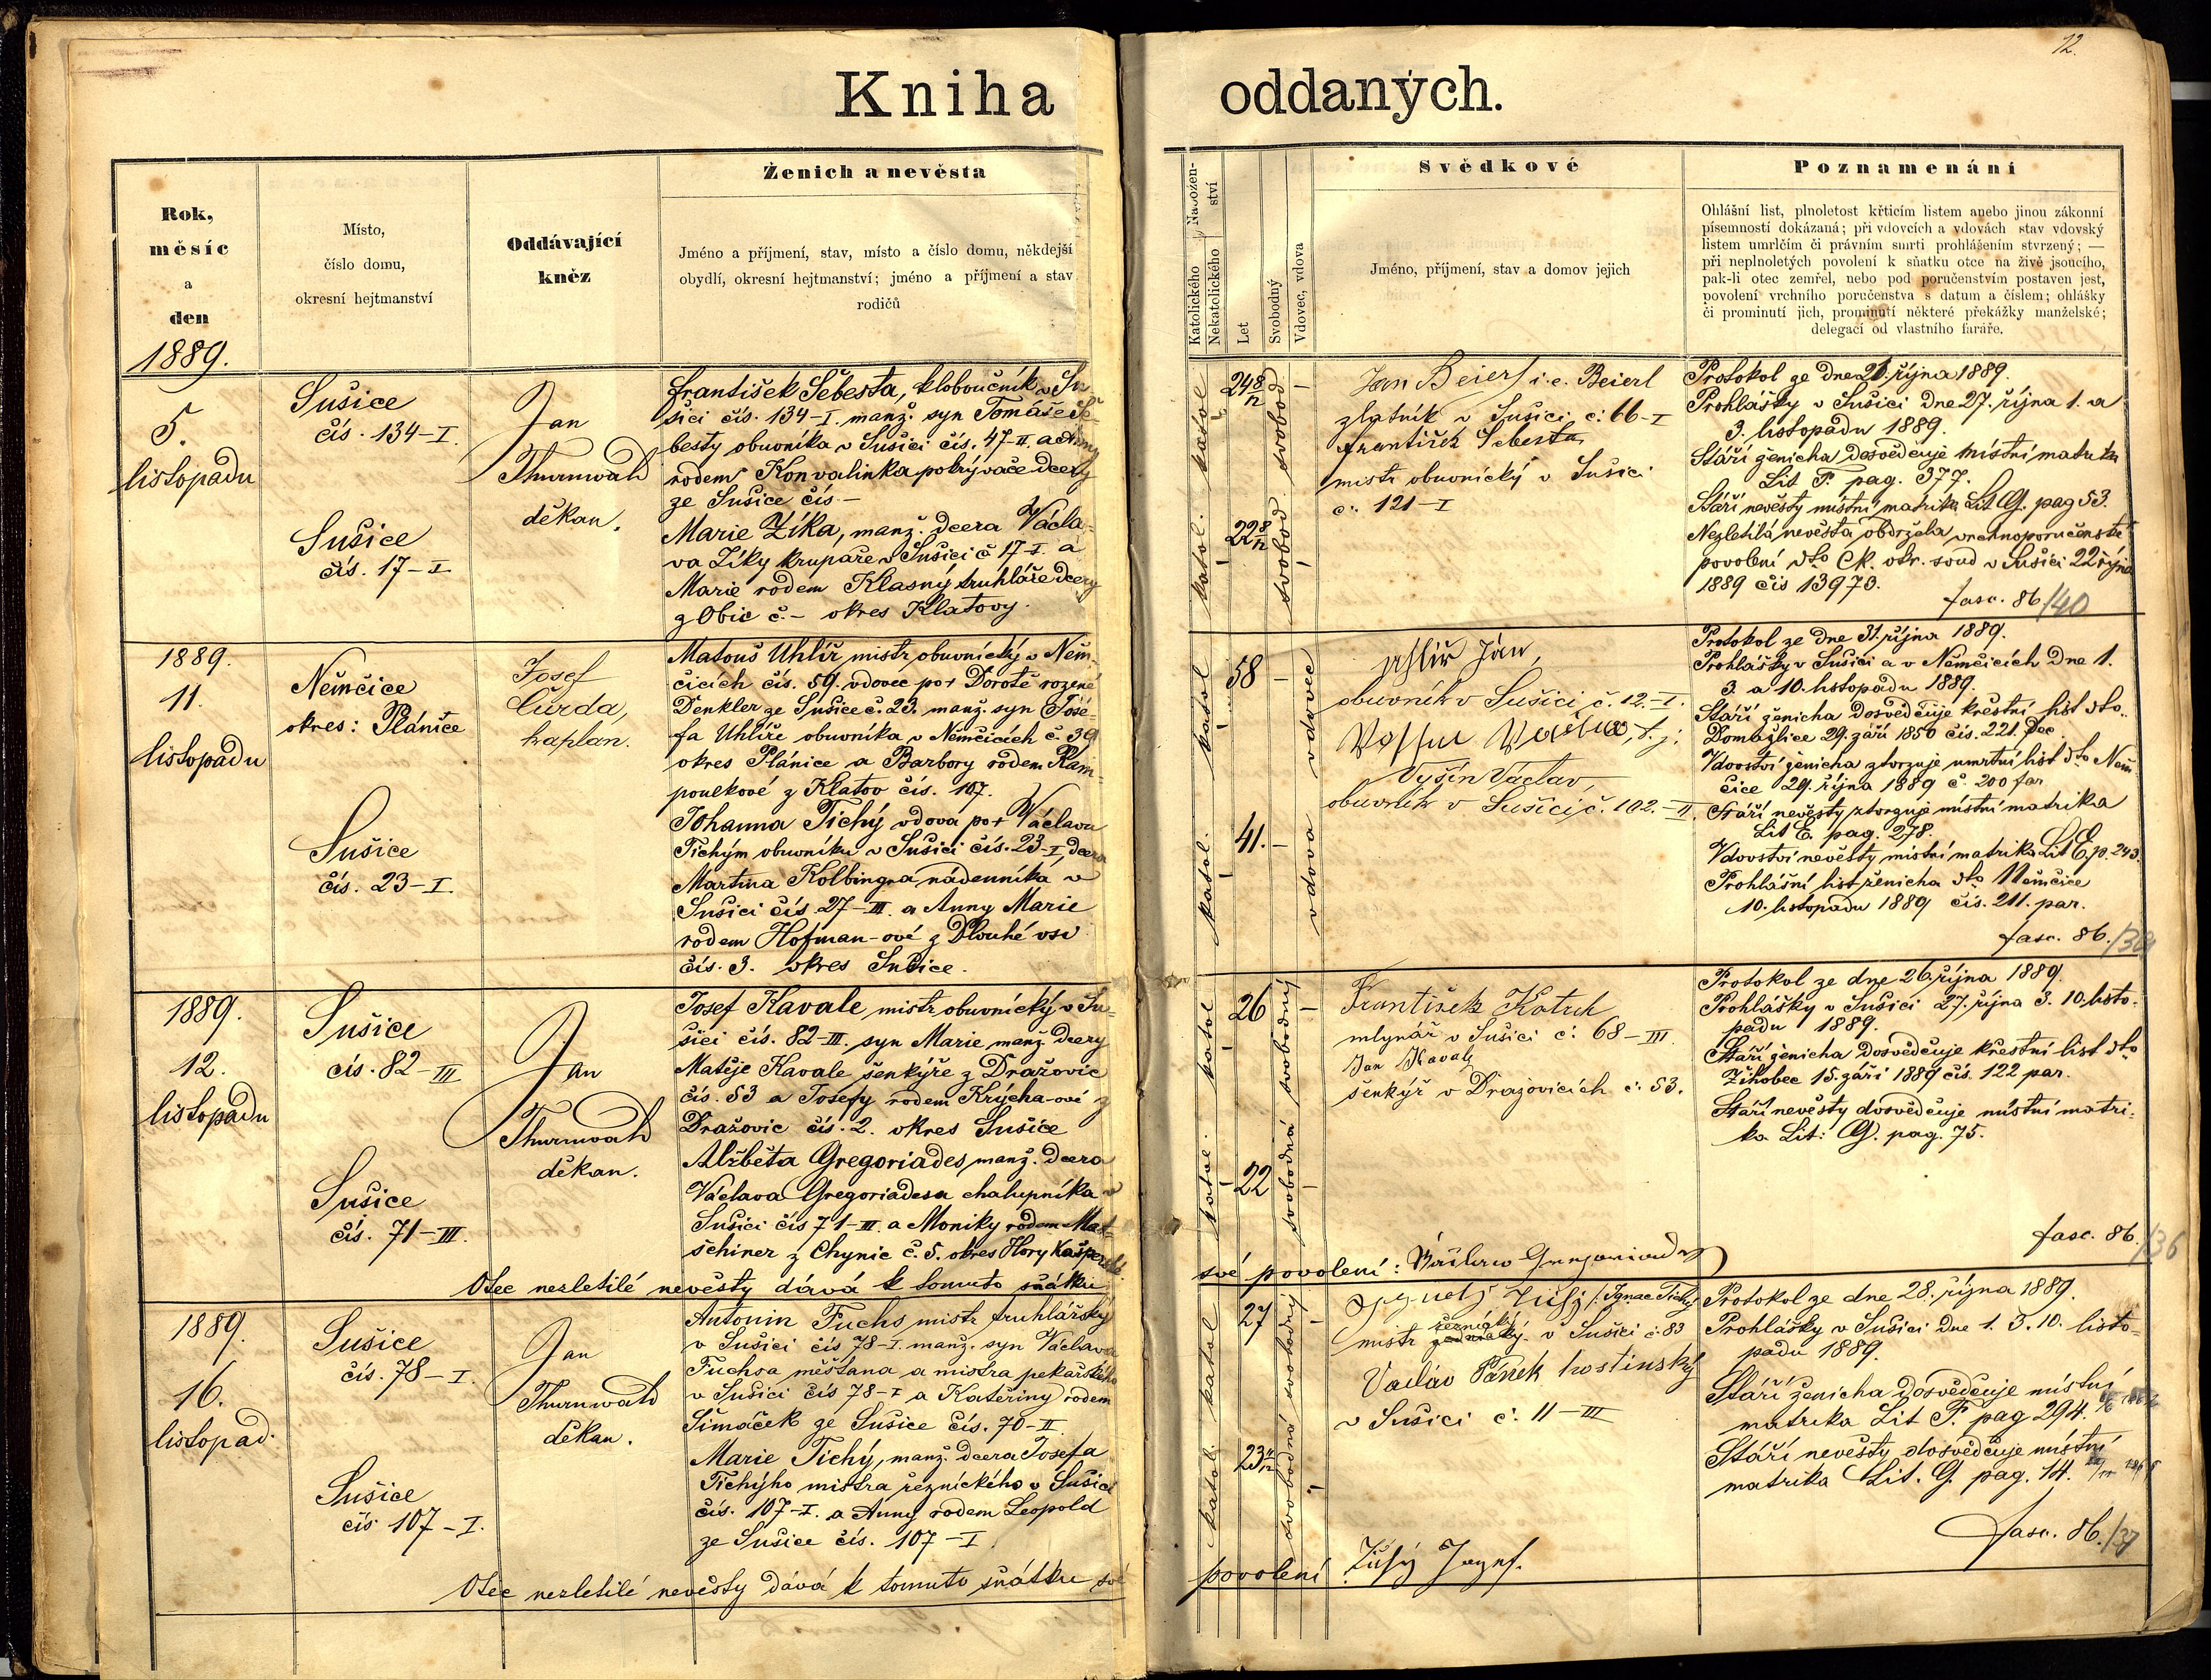 12.
Kniha oddaných.
Rok,
měsíc
a
den
1889.
Místo,
číslo domu,
okresní hejtmanství
Oddávající
kněz
Ženich a nevěsta
Jméno a příjmení, stav, místo a číslo domu, někdejší
obydlí, okresní hejtmanství; jméno a příjmení a stav
rodičů
Nábožen-
ství
Katolického
Nekatolického
Let
Svobodný
Vdovec, vdova
Svědkové
Jméno, příjmení, stav a domov jejich
Poznamenání
Ohlášní list, plnoletost křticím listem anebo jinou zákonní
písemností dokázaná; při vdovcích a vdovách stav vdovský
listem umrlčím či právním smrti prohlášením stvrzený; —
při neplnoletých povolení k sňatku otce na živě jsoucího,
pak-li otec zemřel, nebo pod poručenstvím postaven jest,
povolení vrchního poručenstva s datum a číslem; ohlášky
či prominutí jich, prominutí některé překážky manželské;
delegací od vlastního faráře.
5.
listopadu
Sušice
čís. 134-I.
Sušice
čís. 17-I
Jan
Thurnwald
děkan.
František Šebesta, kloboučník v Su-
šici čís. 134-I. manž. syn Tomáše Še-
besty obuvníka v Sušici čís. 47-II. a Anny
rodem Konvalinka pokrývače dcery
ze Sušice čís -
Marie Zíka, manž. dcera Václa-
va Zíky krupaře v Sušici č 17-I. a
Marie rodem Klasný truhláře dcery
z Obic č. - okres Klatovy.
katol.
katol.
24 8/12
22 8/12
svobod
svobod
Jan Beierl i.e. Beierl
zlatník v Sušici č: 66-I
František Šebesta
mistr obuvnický v Sušici
č: 121-I
Protokol ze dne 21. října 1889.
Prohlášky v Sušici dne 27. října 1. a
3. listopadu 1889.
Stáří ženicha dosvědčuje místní matrika
Lit F. pag. 377.
Stáří nevěsty místní matrika Lit G. pag 53.
Nezletilá nevěsta obdržela vrchnoporučenské
povolení dto CK. okr. soud v Sušici 22 října
1889 čís 13970.
fasc. 86/40
1889.
11.
listopadu
Němčice
okres: Plánice
Sušice
čís. 23-I.
Josef
Čurda,
kaplan.
Matouš Uhlíř mistr obuvnický v Něm-
čicích čís. 59. vdovec po + Dorotě rozené
Denkler ze Sušice č. 23. manž. syn Jose-
fa Uhlíře obuvníka v Němčicích č 39
okres Plánice a Barbory rodem
z Klatov čís. 107.
Johanna Tichý vdova po + Václavu
Tichým obuvníku v Sušici čís. 23-I, dcera
Martina Kolbingra nádenníka v
Sušici čís 27-III. a Anny Marie
rodem Hofman-ové z Dlouhé vsi
čís. 3. okres Sušice.
katol
katol.
58
41.
vdovec
vdova
Uhlíř Ján,
obuvník v Sušici č. 12.-I.
Vyšín Václav,
obuvník v Sušici č. 102.-II.
Protokol ze dne 31. října 1889.
Prohlášky v Sušici a v Němčicích dne 1.
3. a 10. listopadu 1889.
Stáří ženicha dosvědčuje křestní list dto.
Domažlice 29. září 1850 čís. 221. Dec.
Vdovství ženicha ztvrzuje umrtní list dto Něm
čice 29. října 1889 č. 200 far.
Stáří nevěsty ztvrzuje místní matrika
Lit E. pag. 278.
Vdovství nevěsty místní matrika Lit E. p. 243.
Prohlášní list ženicha dto Němčice
10. listopadu 1889 čís. 211. par.
fasc. 86.
1889.
12.
listopadu
Sušice
čís. 82-III
Sušice
čís. 71-III.
Jan
Thurnwald
děkan.
Josef Kavale mistr obuvnický v Su-
šici čís. 82-III. syn Marie manž. dcery
Matěje Kavale šenkýře z Dražovic
čís. 53 a Josefy rodem Krýcha-ové z
Dražovic čís. 2. okres Sušice
Alžběta Gregoriades, manž. dcera
Václava Gregoriadesa chalupníka v
Sušici čís 71-III. a Moniky rodem Mat-
schiner z Chynic č. 5. okres Hory Kašperské.
katol
katol.
26
22
svobodný
svobodná
František Kotrch
mlynář v Sušici č: 68-III.
Jan Kavale
šenkýř v Dražovicích č: 53.
Protokol ze dne 26. října 1889.
Prohlášky v Sušici 27. října 3. 10. listo-
padu 1889.
Stáří ženicha dosvědčuje křestní list dto
Žihobec 15. září 1889 čís. 122 par.
Stáří nevěsty dosvědčuje místní matri-
ka Lit: G. pag. 75.
fasc. 86./36
Otec nezletilé nevěsty dává k tomuto sňátku své povolení: Václaw
1889.
16.
listopad.
Sušice
čís. 78-I.
Sušice
čís 107-I.
Jan
Thurnwald
děkan.
Antonin Fuchs mistr truhlářský
v Sušici čís 78-I. manž. syn Václava
Fuchsa měšťana a mistra pekařského
v Sušici čís 78-I a Kateřiny rodem
Šimáček ze Sušice čís. 70-II.
Marie Tichý, manž. dcera Josefa
Tichýho mistra řeznického v Sušici
čís. 107-I. a Anny rodem Leopold
ze Sušice čís. 107-I.
katol
katol.
27
23
svobodný
svobodná
Ignac Tichý
mistr řeznický v Sušici č: 83
Václav Pánek hostinský
v Sušici č: 11-III
Protokol ze dne 28. října 1889.
Prohlášky v Sušici dne 1. 3. 10. listo-
padu 1889.
Stáří ženicha dosvědčuje místní
matrika Lit F. pag 294.
Stáří nevěsty dosvědčuje místní
matrika Lit. G. pag. 14.
fasc. 86./37
Otec nezletilé nevěsty dává k tomuto sňátku své povolení Tichý Josef.